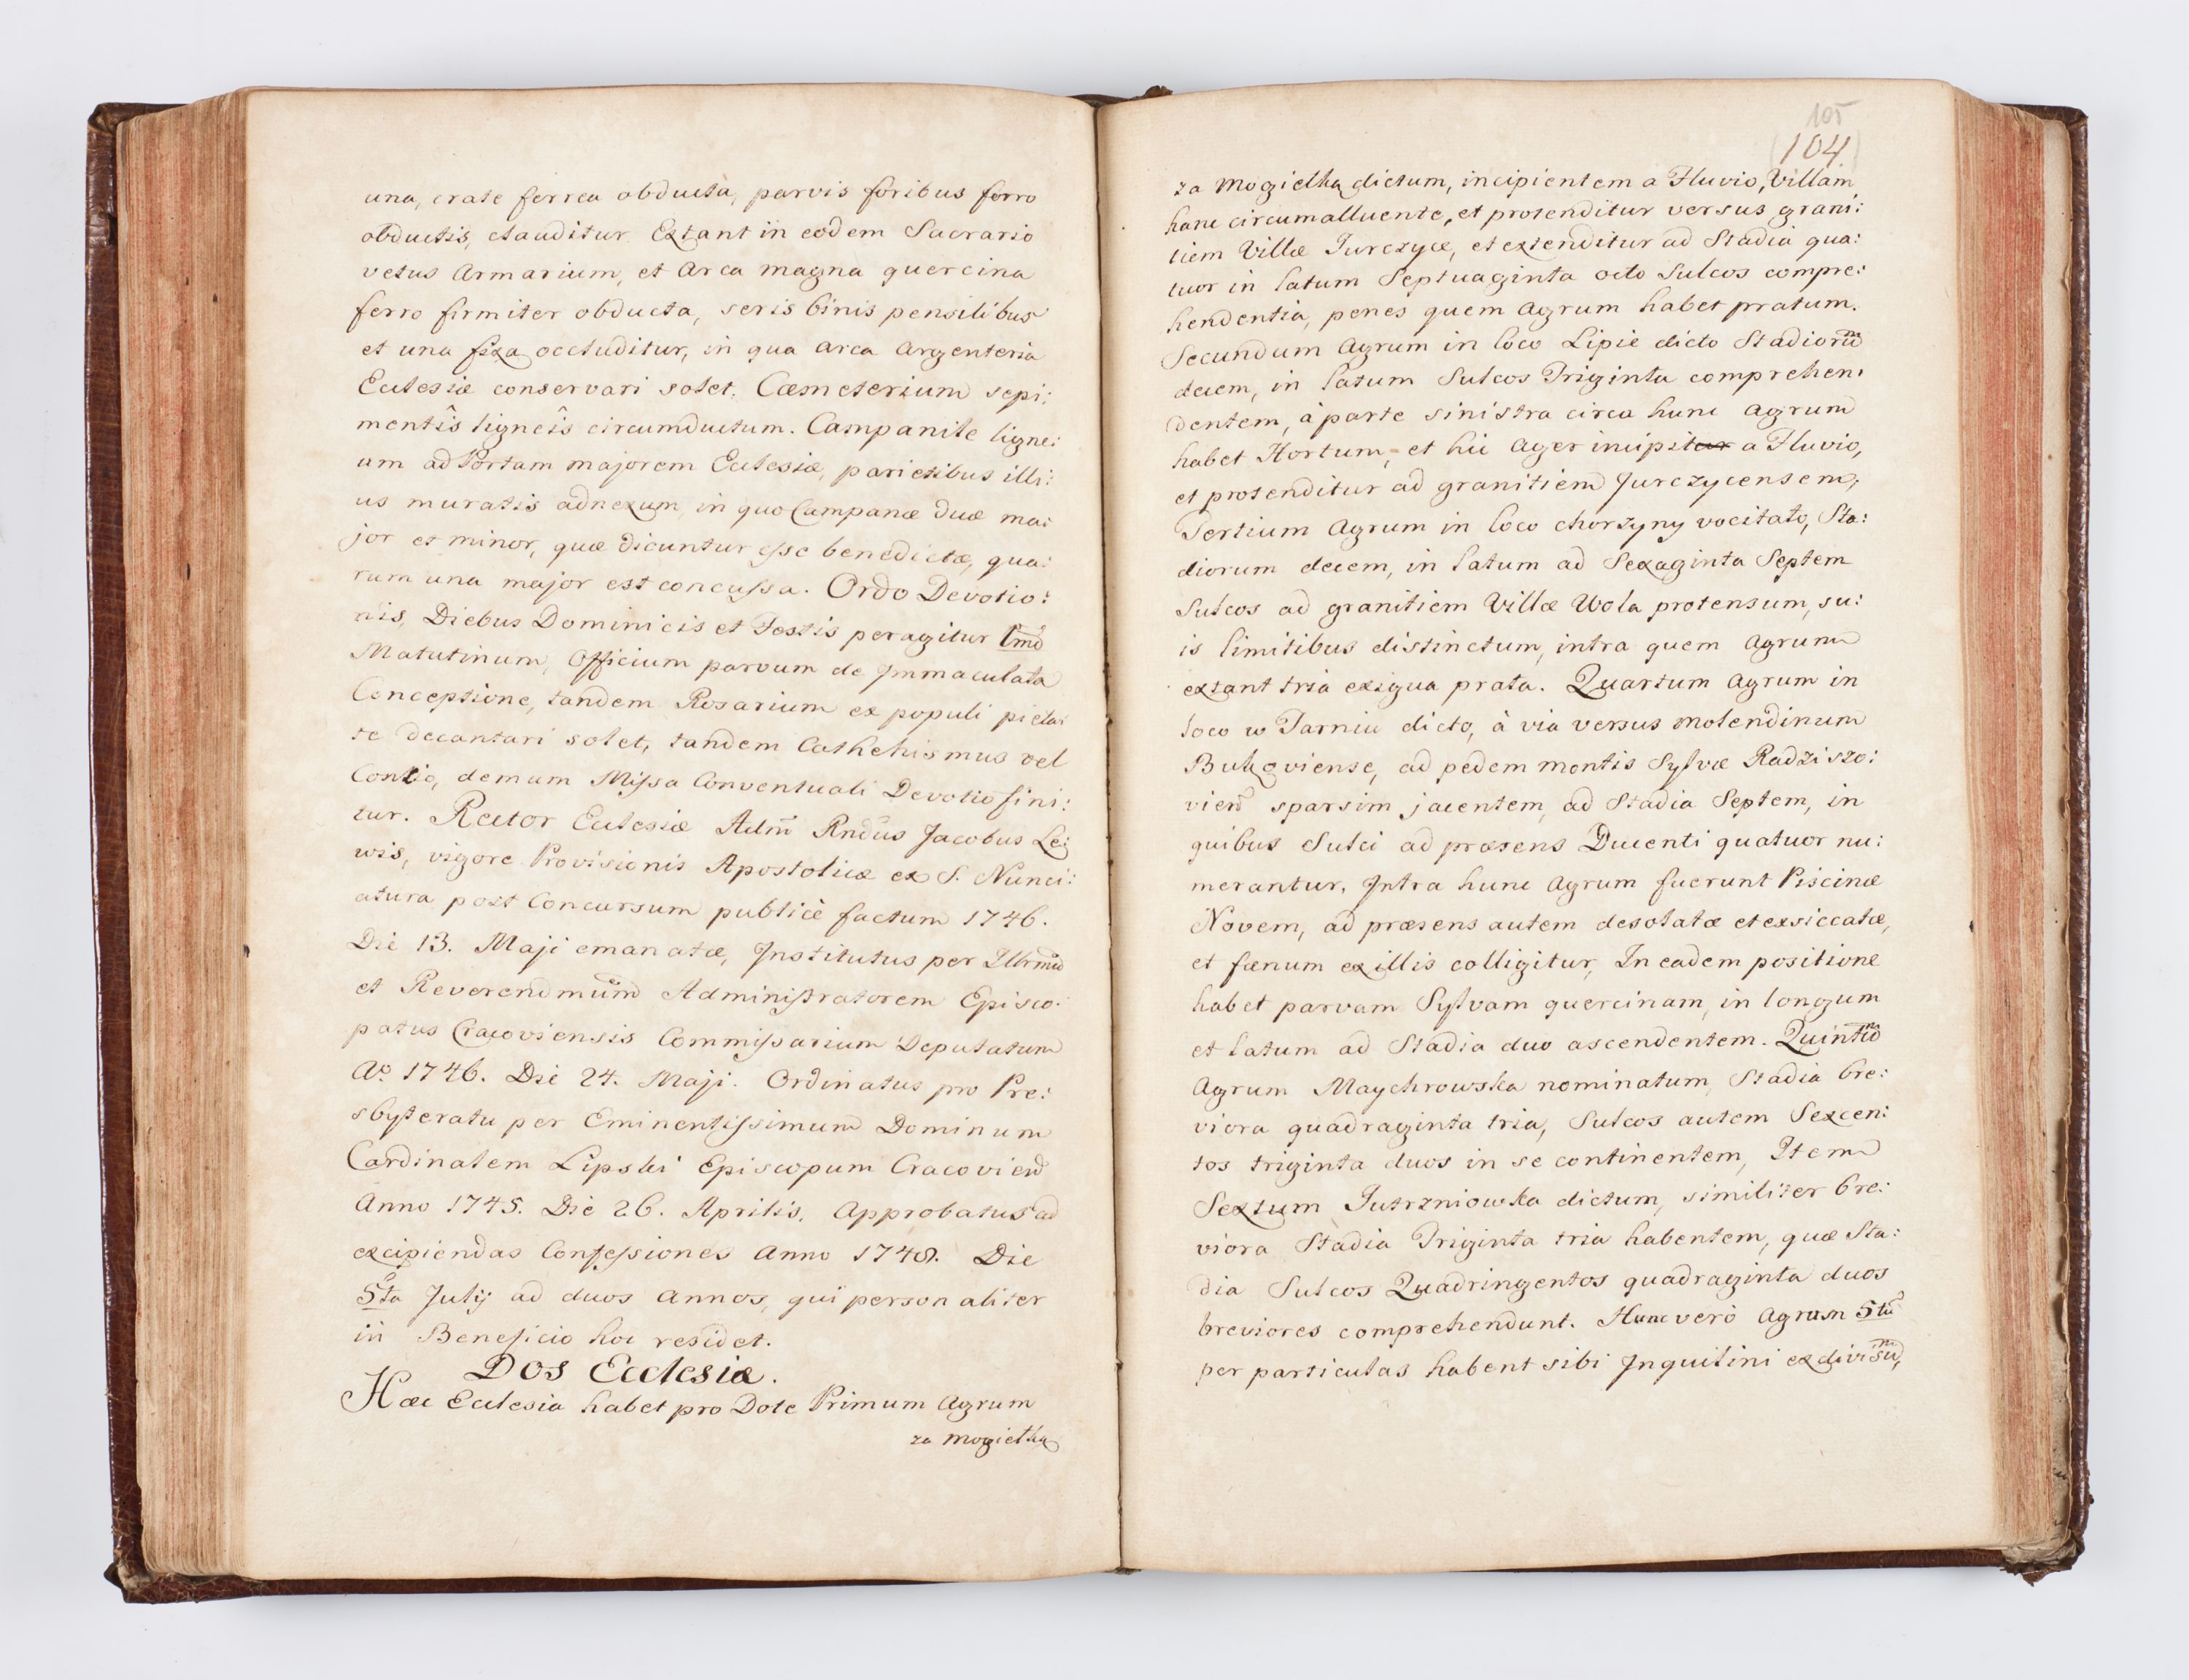 una, crate ferrea obducta, parvis foribus ferro
obductis, clauditur. Extant in eodem Sacrario
vetus Armarium, et Arca magna quercina
ferro firmiter obducta, seris binis pensilibus
et una fixa occluditur, in qua Arca Argenteria
Ecclesiæ conservari solet. Cæmeterium sepi:
mentîs ligneîs circumductum. Campanile ligne:
um ad Portam majorem Ecclesiæ, parietibus illi:
us muratis adnexum, in quo Campanæ duæ ma:
jor et minor, quæ dicuntur esse benedictæ, qua:
rum una major est concussa. Ordo Devotio:
nis, Diebus Dominicis et Festis peragitur 1mo
Matutinum, Officium parvum de Immaculata
Conceptione, tandem Rosarium ex populi pieta:
te decantari solet, tandem Cathehismus vel
Contio, demum Missa Conventuali Devotio fini:
tur. Rector Ecclesiæ Adm̃ Rndus Jacobus Le:
wis, vigore Provisionis Apostolicæ ex S. Nunci:
atura post Concursum publicè factum 1746.
Die 13. Maji emanatæ, Institutus per Illrmũ
et Reverendmũm Administratorem Episco:
patus Cracoviensis Commissarium Deputatum
Aº 1746. Die 24. Maji. Ordinatus pro Pre:
sbyteratu per Eminentissimum Dominum
Cardinalem Lipski Episcopum Cracovien̄
Anno 1745. Die 26. Aprilis. Approbatus ad
excipiendas Confessiones Anno 1748. Die
5ta Julij ad duos Annos, qui personaliter
in Beneficio hoc residet.
Dos Ecclesiæ.
Hæc Ecclesia habet pro Dote Primum Agrum
za Mogiełką
105
104
za Mogiełką dictum, incipientem a Fluvio, Villam
hanc circumalluente, et protenditur versus grani:
tiem Villæ Jurczyce, et extenditur ad Stadia qua:
tuor in latum Septuaginta octo Sulcos compre:
hendentia, penes quem Agrum habet pratum.
Secundum Agrum in loco Lipie dicto Stadiorũ
decem, in latum Sulcos Triginta comprehen:
dentem, à parte sinistra circa hunc Agrum
habet Hortum, et hic Ager incipitur a Fluvio,
et protenditur ad granitiem Jurczycensem,
Tertium Agrum in loco chorzyny vocitato, Sta:
diorum decem, in latum ad Sexaginta Septem
Sulcos ad granitiem Villæ Wola protensum, su:
is limitibus distinctum, intra quem Agrum
extant tria exigua prata. Quartum Agrum in
loco w Tarniu dicto, à via versus Molendinum
Bukoviense, ad pedem montis Sylvæ Radziszo:
vien̄ sparsim jacentem, ad Stadia Septem, in
quibus Sulci ad præsens Ducenti quatuor nu:
merantur. Intra hunc Agrum fuerunt Piscinæ
Novem, ad præsens autem desolatæ et exsiccatæ,
et fænum ex illis colligitur, In eadem positione
habet parvam Sylvam quercinam, in longum
et latum ad Stadia duo ascendentem. Quintũ
Agrum Maychrowska nominatum, Stadia bre:
viora quadraginta tria, Sulcos autem Sexcen:
tos triginta duos in se continentem, Item
Sextum Jutrzniowska dictum, similiter bre:
viora Stadia Triginta tria habentem, quæ Sta:
dia Sulcos Quadringentos quadraginta duos
breviores comprehendunt. Hunc verò Agrum 5tũ
per particulas habent sibi Inquilini ex divisũ,